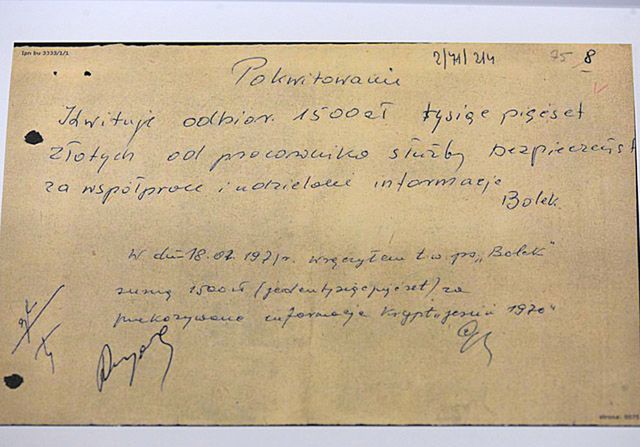 Ipn bu 3333/1/1
2/71/214 75 8
Pokwitowanie
Kwituje odbior 1500 zł tysiąc pięćset
Złotych od pracownika służby bezpieczeńst
za współprace i udzielone informacje
Bolek
W dn 18.01.1971r. wręczyłem t.w. ps. „Bolek"
sumę 1500 zł (jedentysiącpięćset) za
przekazywane informacje krypt. „jesień 1970"
strona: